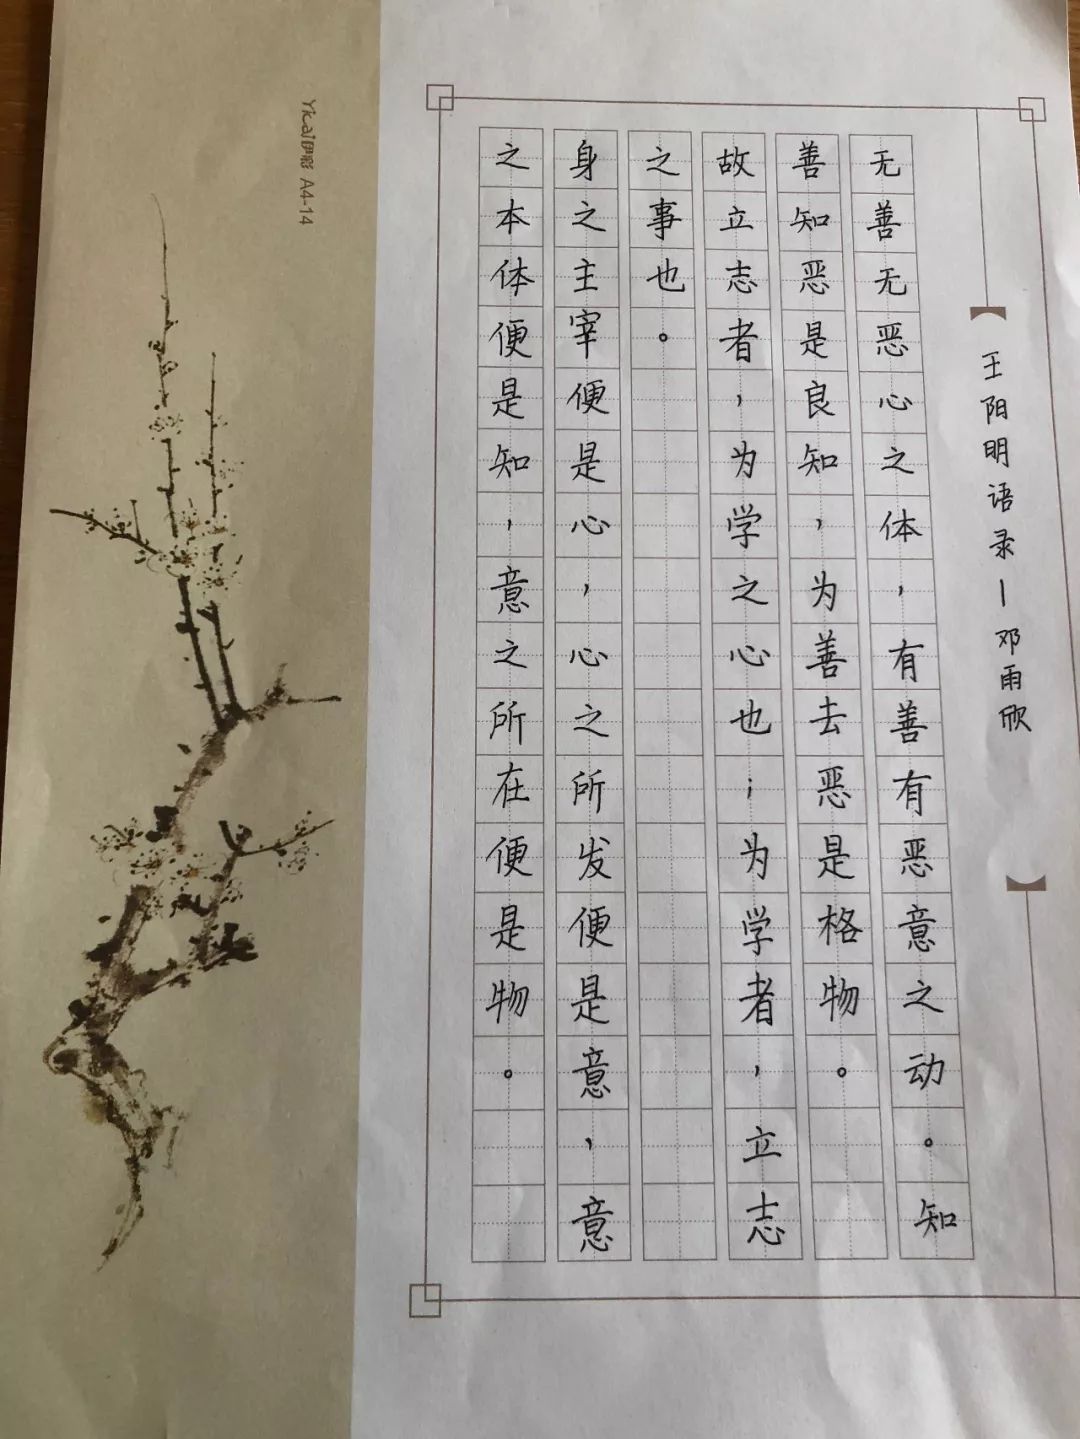 王阳明语录—邓雨欣
无善无恶心之体，有善有恶意之动。知
善知恶是良知，为善去恶是格物。
故立志者，为学之心也；为学者，立志
之事也。
身之主宰便是心，心之所发便是意，意
之本体便是知，意之所在便是物。
Yicai伊彩 A4-14